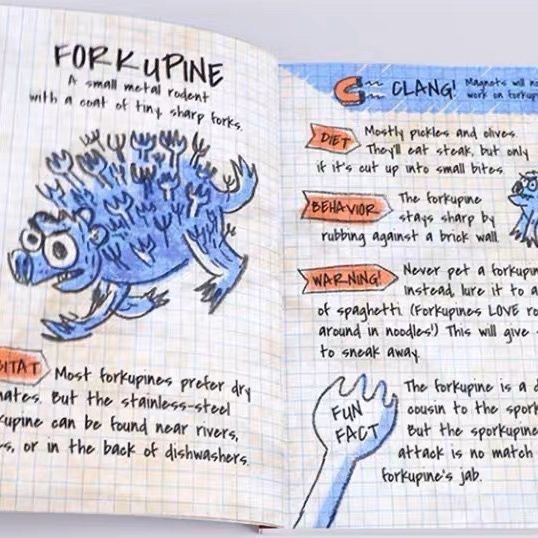 FORKUPINE
A small metal rodent
with a coat of tiny, sharp forks.
Most forkupines prefer dry
But the stainless-steel
can be found near rivers,
or in the back of dishwashers.
CLANG! Magnets will
work on
DIET Mostly pickles and olives.
They'll eat steak, but only
if it's cut up into small bites.
BEHAVIOR The forkupine
stays sharp by
rubbing against a brick wall.
WARNING! Never pet a
Instead, lure it to a
of spaghetti. (Forkupines LOVE
around in noodles!) This will give
to sneak away.
FUN
FACT
The forkupine is a
cousin to the
But the sporkupine
attack is no match
forkupine's jab.